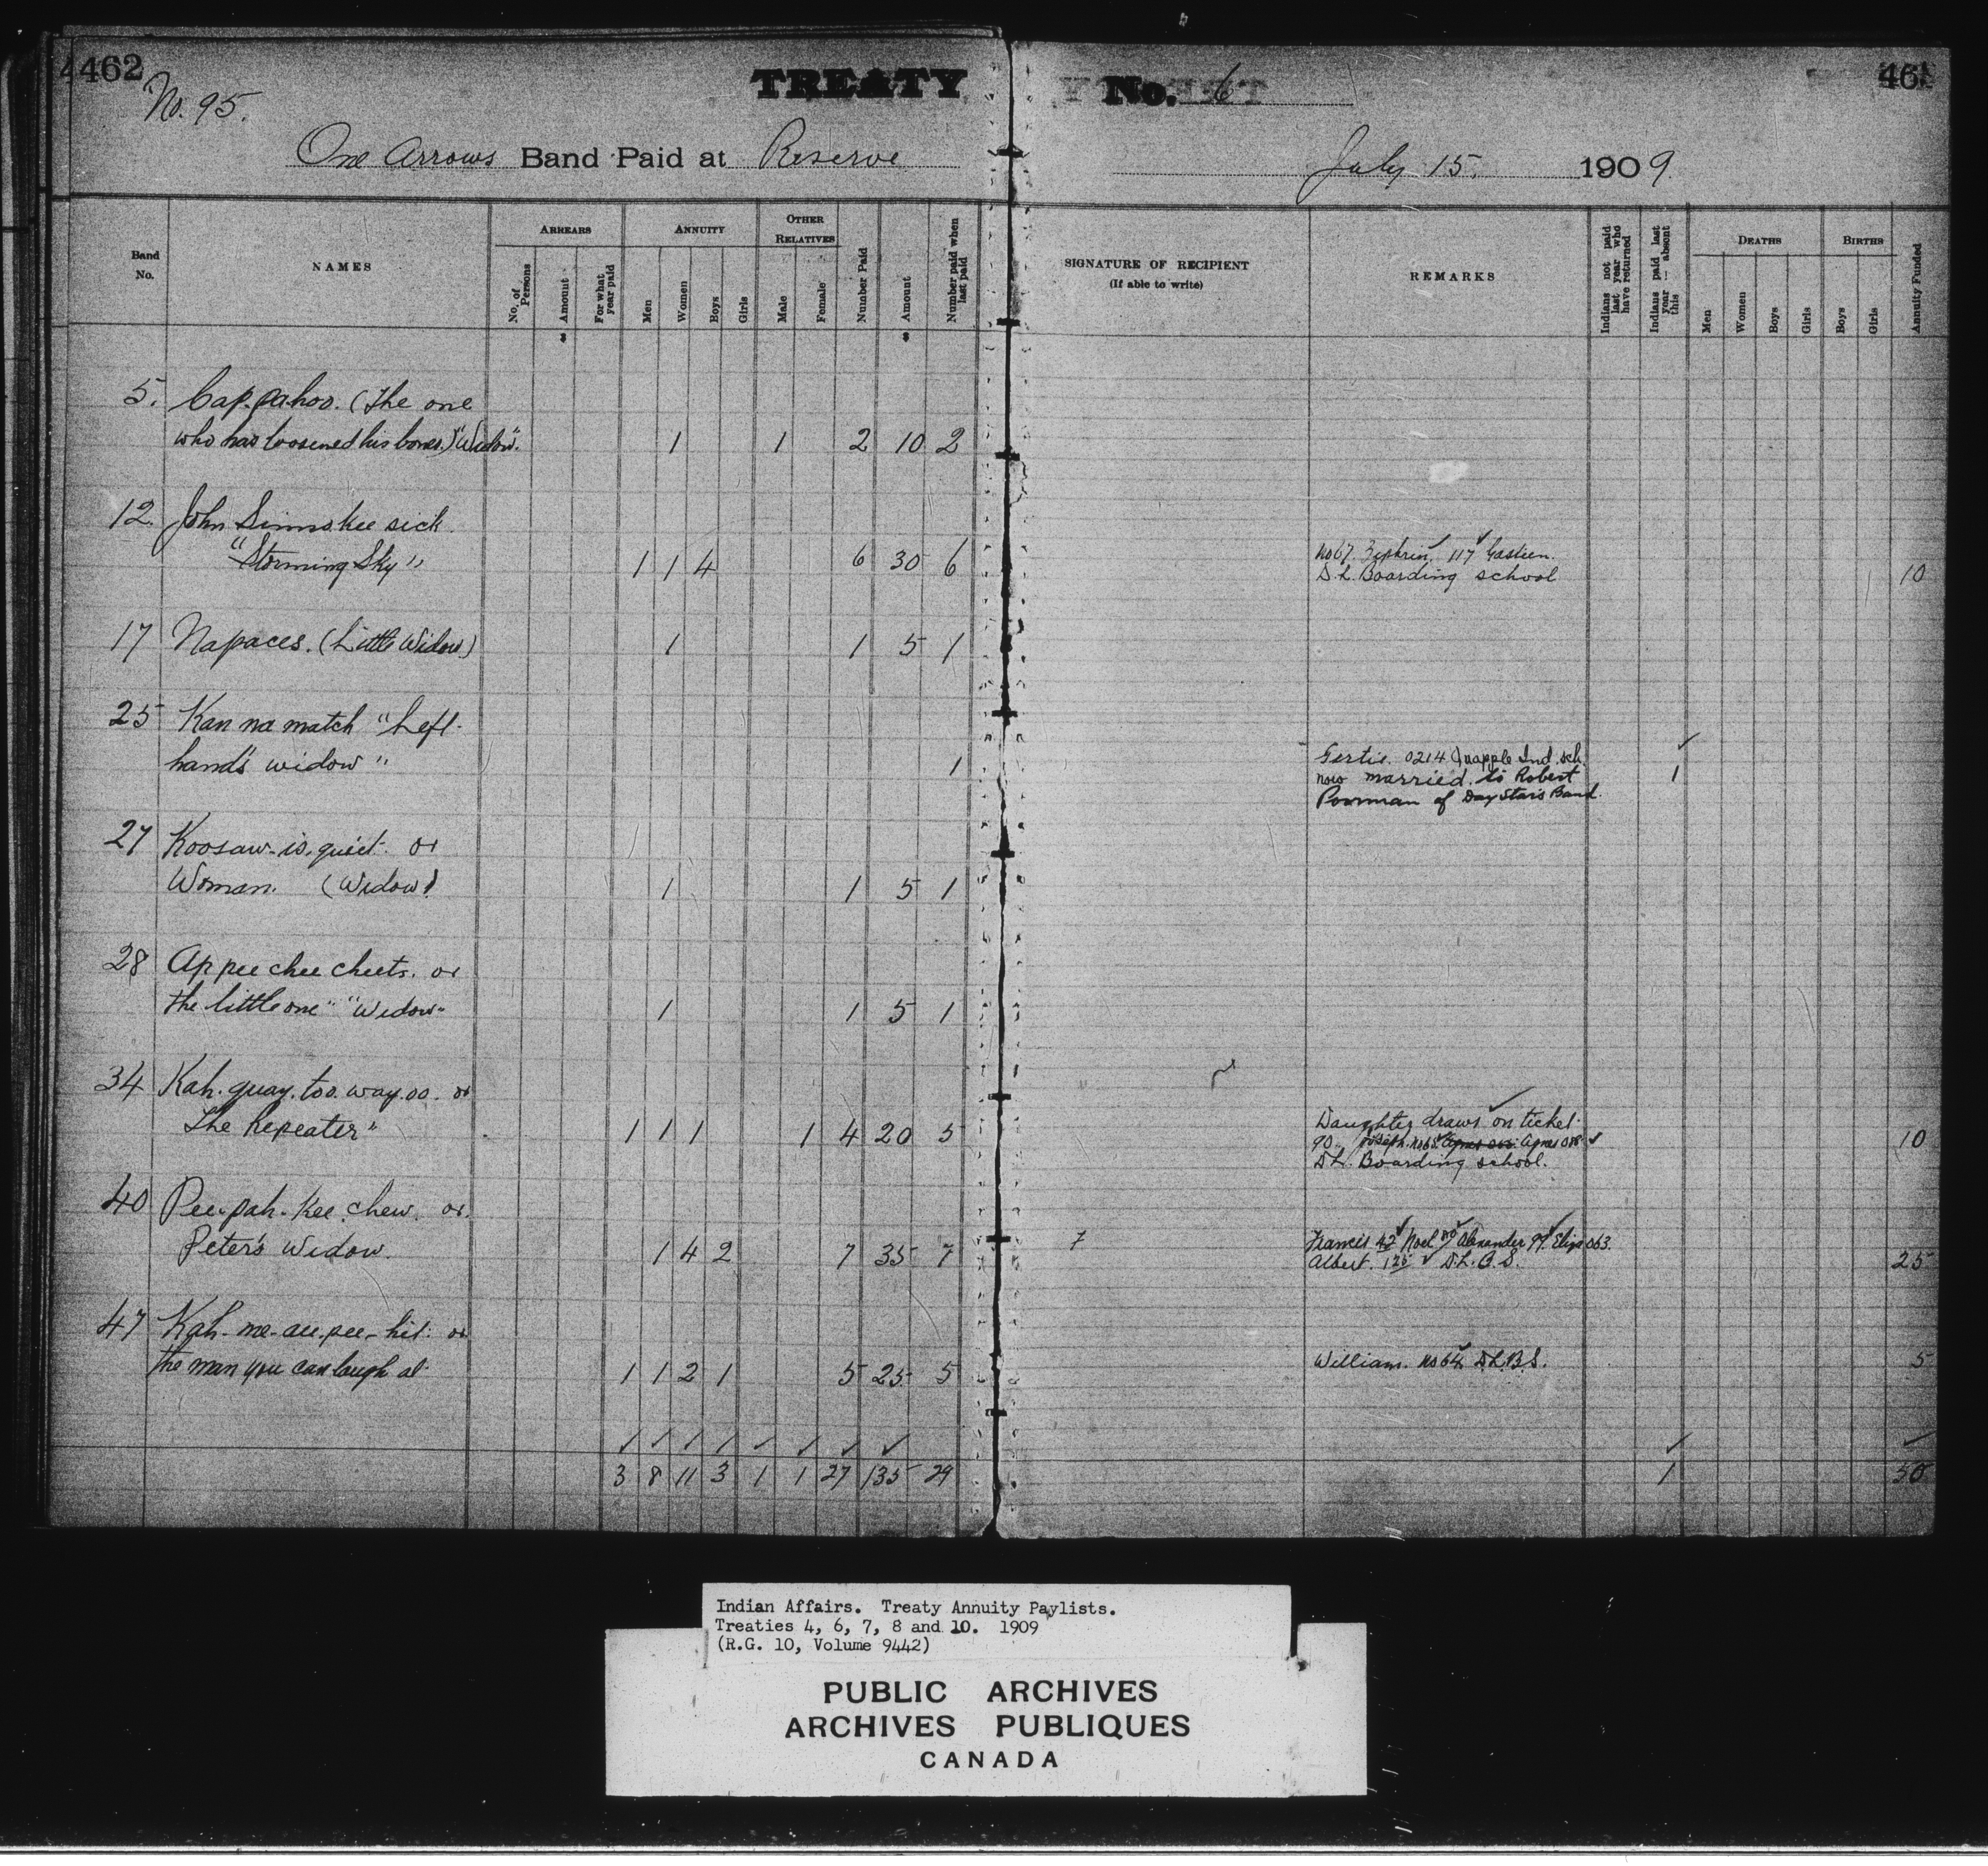 462
No. 95.
TREATY No. 6
One Arrows Band Paid at Reserve
July 15. 1909
Band No.
NAMES
ARREARS
No. of Persons
Amount
For what year paid
ANNUITY
Men
Women
Boys
Girls
OTHER RELATIVES
Male
Female
Number Paid
Amount
Number paid when last paid
SIGNATURE OF RECIPIENT
(If able to write)
REMARKS
Indians not paid last year who have returned
Indians paid last year — absent this
DEATHS
Men
Women
Boys
Girls
BIRTHS
Boys
Girls
Annuity Funded
$ $
5. Cap.pahoo. (The one
who has loosened his bones.) "Widow". 1 1 2 10 2
12. John Simmskee sick
"Storming Sky" 1 1 4 6 30 6
No 67. Zephrin, 117 Gasteen.
D.L. Boarding school 10
17 Napaces. (Little Widow) 1 1 5 1
25 Kan na match "Left-
hand's widow" 1
Gertie. 0214 Quapple Ind. sch.
now married to Robert 1
Poorman of Day Stars Band.
27 Koosaw-is.quiet. or
Woman. (Widow) 1 1 5 1
28 Ap pee chee cheets. or
the little one" "Widow" 1 1 5 1
34 Kah.quay.too.way.oo. or
The Repeater" 1 1 1 1 4 20 5
Daughter draws on ticket.
90. Joseph. Agnes
D.L. Boarding school. 10
40 Pee-pah-kee.chew. or.
Peter's Widow. 1 4 2 7 35 7
Francis 42 Noel Alexander 99. Eliza 063.
Albert. 125 D.L.B.S. 25
47 Kah-me-au.pee-hit: or
the man you can laugh at 1 1 2 1 5 25 5
William. No 64 D.L.B.S. 5
3 8 11 3 1 1 27 135 29
1 50
Indian Affairs. Treaty Annuity Paylists.
Treaties 4, 6, 7, 8 and 10. 1909
(R.G. 10, Volume 9442)
PUBLIC ARCHIVES
ARCHIVES PUBLIQUES
CANADA